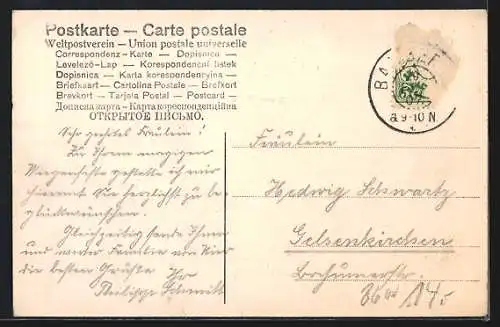 Postkarte — Carte postale
Weltpostverein — Union postale universelle
Correspondenz-Karte — Dopisnica —
Levelező-Lap — Korespondenční lístek
Dopisnica — Karta korespondencyjna —
Briefkaart — Cartolina Postale — Brefkort
Brevkort — Tarjeta Postal — Postcard —
Дописна карта — Карта кореспонденційна
ОТКРЫТОЕ ПИСЬМО.
Sehr geehrtes Fräulein!
Zu Ihrem morgigen
Wiegenfeste gestatte ich mir
hiermit Sie herzlichst zu be-
glückwünschen.
Gleichzeitig sende Ihnen
und werter Familie von hier
die besten Grüße
Ihr
Philipp Schmitt
BA
9-10 N.
Fräulein
Hedwig Schwartz
Gelsenkirchen
Bochumerstr.